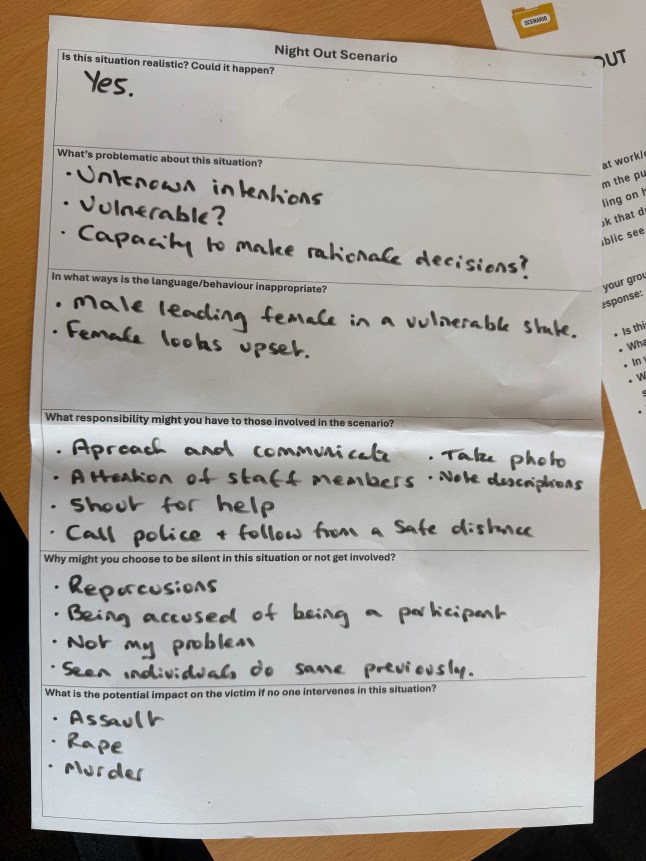 SCENARIO
OUT
Night Out Scenario
Is this situation realistic? Could it happen?
Yes.
What's problematic about this situation?
• Unknown intentions
• Vulnerable?
• Capacity to make rationale decisions?
In what ways is the language/behaviour inappropriate?
• Male leading female in a vulnerable state.
• Female looks upset.
What responsibility might you have to those involved in the scenario?
• Aproach and communicate
• Attention of staff members
• Shout for help
• Call police + follow from a safe distance
• Take photo
• Note descriptions
Why might you choose to be silent in this situation or not get involved?
• Reporcusions
• Being accused of being a participant
• Not my problem
• Seen individuals do same previously.
What is the potential impact on the victim if no one intervenes in this situation?
• Assault
• Rape
• Murder
at work
m the pu
ling on h
ok that d
blic see
your grou
esponse:
• Is thi
• Wha
• In
• W